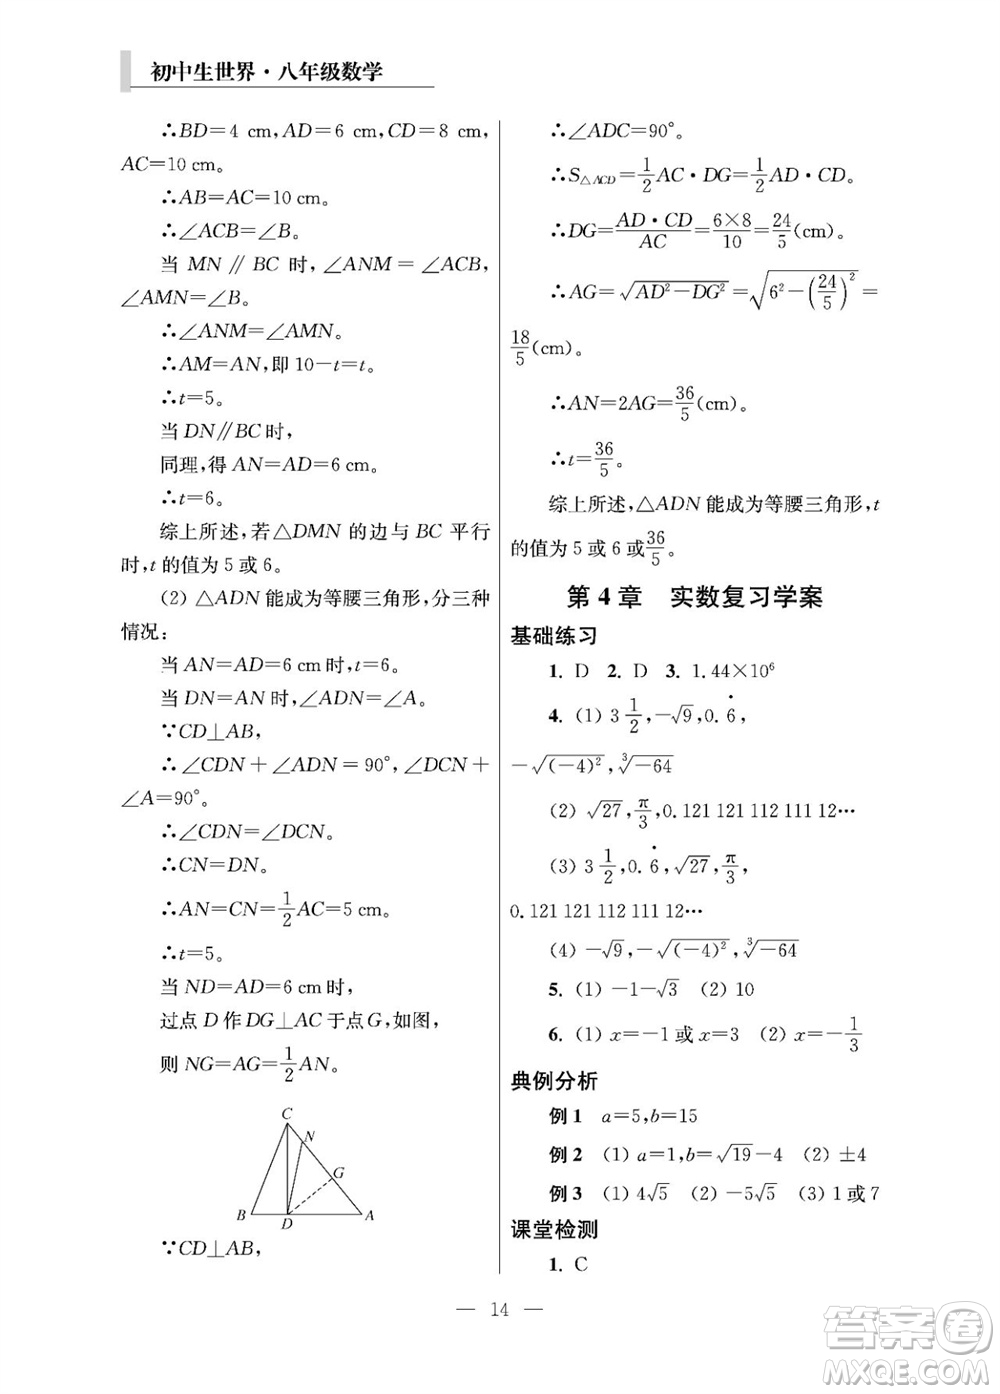 初中生世界·八年级数学
∴BD=4 cm,AD=6 cm,CD=8 cm,
AC=10 cm。
∴AB=AC=10 cm。
∴∠ACB=∠B。
当 MN∥BC 时,∠ANM=∠ACB,
∠AMN=∠B。
∴∠ANM=∠AMN。
∴AM=AN,即 10-t=t。
∴t=5。
当 DN∥BC 时,
同理,得 AN=AD=6 cm。
∴t=6。
综上所述,若△DMN 的边与 BC 平行
时,t 的值为 5 或 6。
(2) △ADN 能成为等腰三角形,分三种
情况:
当 AN=AD=6 cm 时,t=6。
当 DN=AN 时,∠ADN=∠A。
∵CD⊥AB,
∴∠CDN+∠ADN=90°,∠DCN+
∠A=90°。
∴∠CDN=∠DCN。
∴CN=DN。
∴AN=CN=1/2AC=5 cm。
∴t=5。
当 ND=AD=6 cm 时,
过点 D 作 DG⊥AC 于点 G,如图,
则 NG=AG=1/2AN。
C
N
G
B D A
∵CD⊥AB,
∴∠ADC=90°。
∴S△ACD=1/2AC·DG=1/2AD·CD。
∴DG=AD·CD/AC=6×8/10=24/5(cm)。
∴AG=√(AD²-DG²)=√(6²-(24/5)²)=
18/5(cm)。
∴AN=2AG=36/5(cm)。
∴t=36/5。
综上所述,△ADN 能成为等腰三角形,t
的值为 5 或 6 或36/5。
第 4 章 实数复习学案
基础练习
1. D 2. D 3. 1.44×10⁶
4. (1) 3 1/2,-√9,0.6̇,
-√(-4)²,³√-64
(2) √27,π/3,0.121 121 112 111 12…
(3) 3 1/2,0.6̇,√27,π/3,
0.121 121 112 111 12…
(4) -√9,-√(-4)²,³√-64
5. (1) -1-√3 (2) 10
6. (1) x=-1 或 x=3 (2) x=-1/3
典例分析
例 1 a=5,b=15
例 2 (1) a=1,b=√19-4 (2) ±4
例 3 (1) 4√5 (2) -5√5 (3) 1 或 7
课堂检测
1. C
— 14 —
答案圈
MXQE.COM